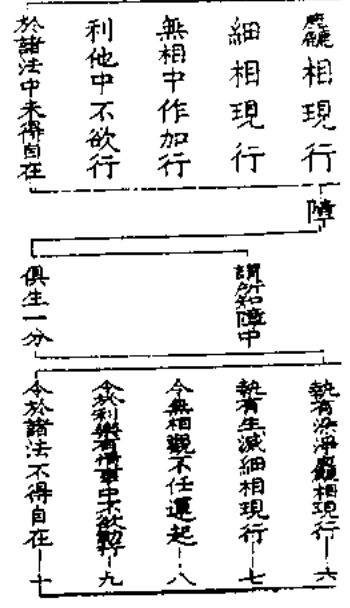 麤相現行
細相現行
無相中作加行
利他中不欲行
於諸法中未得自在
障
謂所知障中
俱生一分
執有染淨麤相現行—六
執有生滅細相現行—七
令無相觀不任運起—八
令於利樂有情事中不欲勤行—九
令於諸法不得自在—十